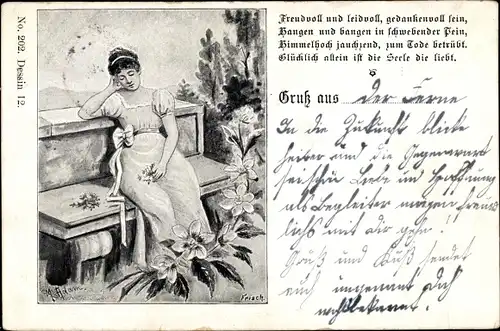 No. 202. Dessin 12.
Freudvoll und leidvoll, gedankenvoll sein,
Hangen und bangen in schwebender Pein,
Himmelhoch jauchzend, zum Tode betrübt.
Glücklich allein ist die Seele die liebt.
Gruß aus der Ferne
In die Zukunft blicke
heiter und die Gegenwart
Liebe und Hoffnung
als Begleiter mögen
mit dir gehn!
Gruß und Kuß sendet
euch ungenannt doch
wohlbekannt.
M. Adam.
Frisch.